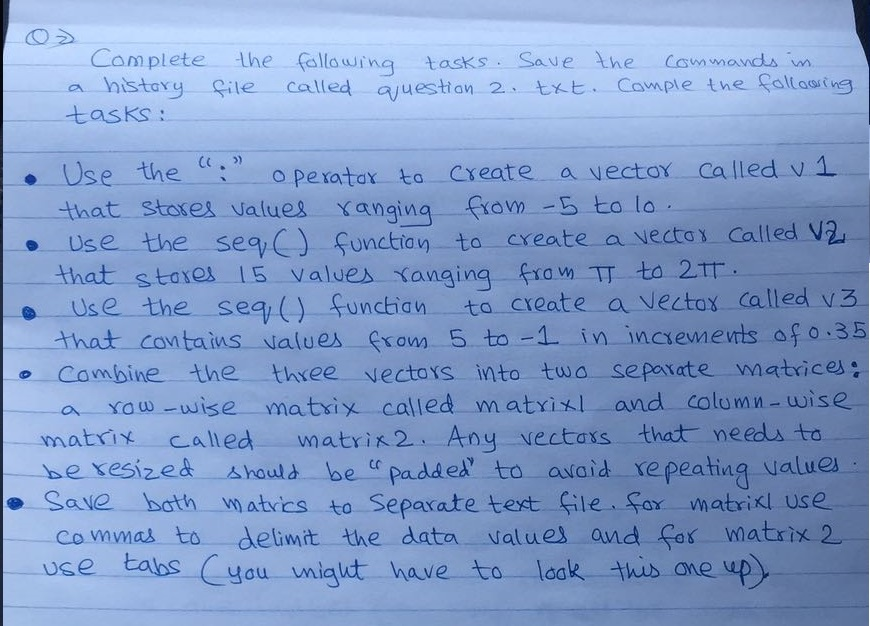 Q2
Complete the following tasks. Save the commands in
a history file called question 2. txt. Comple the following
tasks:
• Use the ":" operator to create a vector called v 1
that stores values ranging from -5 to 10.
• Use the seq() function to create a vector called V2
that stores 15 values ranging from π to 2π.
• Use the seq() function to create a vector called v3
that contains values from 5 to -1 in increments of 0.35
• Combine the three vectors into two separate matrices:
a row-wise matrix called matrix1 and column-wise
matrix called matrix2. Any vectors that needs to
be resized should be "padded" to avoid repeating values.
• Save both matrics to Separate text file. for matrix1 use
commas to delimit the data values and for matrix 2
use tabs (you might have to look this one up).